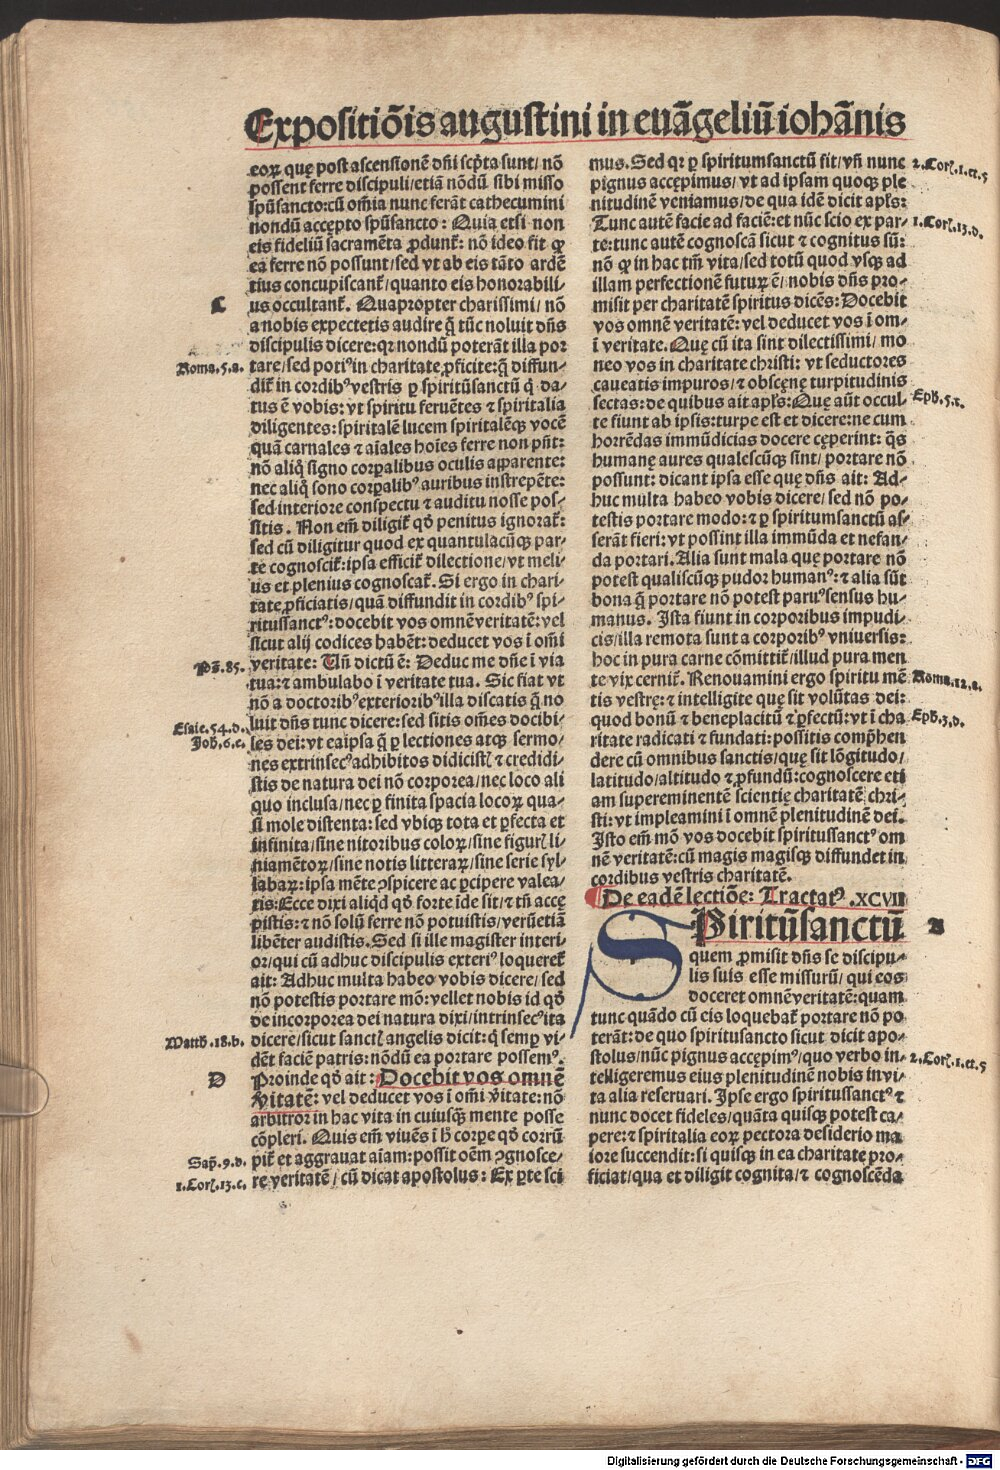 Expositiōis augustini in euāgeliū iohānis
eoꝝ quę post ascensionē dñi scṗta sunt/ nō
possent ferre discipuli/etiā nōdū sibi misso
spūsancto: cū om̄ia nunc ferāt cathecumini
nondū accepto spūsancto: Quia etsi non
eis fideliū sacramēta ꝓdunt᷑: nō ideo fit ꝙ
ea ferre nō possunt/sed vt ab eis tāto ardē
tius concupiscant᷑/quanto eis honorabili⸗
us occultant᷑. Quapropter charissimi/ nō
a nobis expectetis audire q̄ tūc noluit dñs
discipulis dicere: qꝛ nondū poterāt illa por
tare/sed potiꝰ in charitate ꝓficite: q̄ diffun⸗
dit᷑ in cordibꝰ vestris ꝑ spiritūsanctū q̇ da⸗
tus ē vobis: vt spiritu feruētes ⁊ spiritalia
diligentes: spiritalē lucem spiritalēqꝫ vocē
quā carnales ⁊ aīales hoīes ferre non pn̄t:
nō aliq̊ signo corꝑalibus oculis apparente:
nec aliq̊ sono corꝑalibꝰ auribus instrepēte:
sed interiore conspectu ⁊ auditu nosse pos⸗
sitis. Non em̄ diligit᷑ qḋ penitus ignorat᷑:
sed cū diligitur quod ex quantulacūqꝫ par⸗
te cognoscit᷑: ipsa efficit᷑ dilectione/vt meli⸗
us et plenius cognoscat᷑. Si ergo in chari⸗
tate ꝓficiatis/quā diffundit in cordibꝰ spi⸗
ritussanctꝰ: docebit vos omnē veritatē: vel
sicut alij codices habēt: deducet vos ī om̄i
veritate: Vn̄ dictū ē: Deduc me dn̄e ī via
tua: ⁊ ambulabo ī veritate tua. Sic fiat vt
nō a doctoribꝰ exterioribꝰ illa discatis q̄ no
luit dñs tunc dicere: sed sitis om̄es docibi⸗
les dei: vt ea ipsa q̄ ꝑ lectiones atqꝫ sermo⸗
nes extrinsecꝰ adhibitos didicist᷑ ⁊ credidi⸗
stis de natura dei nō corporea/nec loco ali
quo inclusa/nec ꝑ finita spacia locoꝝ qua⸗
si mole distenta: sed vbiqꝫ tota et ꝑfecta et
infinita/sine nitoribus coloꝝ/sine figurꝝ li⸗
niamētoꝝ/sine notis litteraꝝ/sine serie syl⸗
labaꝝ: ipsa mēte ꝯspicere ac ꝑcipere valea⸗
tis: Ecce dixi aliqd̄ qḋ forte īde sit/⁊ tn̄ acce
pistis: ⁊ nō solū ferre nō potuistis/verūetiā
libēter audistis. Sed si ille magister interi⸗
or/qui cū adhuc discipulis exteriꝰ loqueret᷑
ait: Adhuc multa habeo vobis dicere/sed
nō potestis portare mō: vellet nobis id qḋ
de incorporea dei natura dixi/intrinsecꝰ ita
dicere/sicut sanct᷑ angelis dicit: q̇ semꝑ vi⸗
dēt faciē patris: nōdū ea portare possemꝰ.
Proinde qḋ ait: Docebit vos omnē
v̄itatē: vel deducet vos ī om̄i v̄itate: nō
arbitror in hac vita in cuiusqꝫ mente posse
cōpleri. Quis em̄ viuēs ī ḣ corꝑe qḋ corrū
pit᷑ et aggrauat aīam: possit oēm ꝯgnosce⸗
re veritatē/ cū dicat apostolus: Ex ꝑte sci
C
Roma.5.a.
Pš.85.
Esaie.54.d.
Joh̄.6.e.
Matth̄.18.b.
D
Sap̄.9.d.
1.Corꝭ.13.c.
mus. Sed qꝛ ꝑ spiritumsanctū fit/vn̄ nunc
pignus accępimus/vt ad ipsam quoqꝫ ple
nitudinē veniamus/de qua idē dicit apl̄s:
Tunc autē facie ad faciē: et nūc scio ex par⸗
te: tunc autē cognoscā sicut ⁊ cognitus sū:
nō ꝙ in hac tm̄ vita/sed totū quod vsqꝫ ad
illam perfectionē futuꝝ ē/ nobis dñs pro⸗
misit per charitatē spiritus dicēs: Docebit
vos omnē veritatē: vel deducet vos ī om⸗
ī veritate. Quę cū ita sint dilectissimi/ mo
neo vos in charitate christi: vt seductores
caueatis impuros/⁊ obscęnę turpitudinis
sectas: de quibus ait apl̄s: Quę aūt occul⸗
te fiunt ab ipsis: turpe est et dicere: ne cum
horrēdas immūdicias docere cęperint: q̄s
humanę aures qualescūqꝫ sint/ portare nō
possunt: dicant ipsa esse quę dñs ait: Ad⸗
huc multa habeo vobis dicere/ sed nō po⸗
testis portare modo: ⁊ ꝑ spiritumsanctū as⸗
serāt fieri: vt possint illa immūda et nefan⸗
da portari. Alia sunt mala quę portare nō
potest qualiscūqꝫ pudor humanꝰ: ⁊ alia sūt
bona q̄ portare nō potest paruꝰ sensus hu⸗
manus. Ista fiunt in corporibus impudi⸗
cis/illa remota sunt a corporibꝰ vniuersis:
hoc in pura carne cōmittit᷑/illud pura men
te vix cernit᷑. Renouamini ergo spiritu mē
tis vestrę: ⁊ intelligite quę sit volūtas dei:
quod bonū ⁊ beneplacitū ⁊ ꝑfectū: vt ī cha
ritate radicati ⁊ fundati: possitis comp̄hen
dere cū omnibus sanctis/quę sit lōgitudo/
latitudo/altitudo ⁊ ꝓfundū: cognoscere eti
am supereminentē scientię charitatē chri⸗
sti: vt impleamini ī omnē plenitudinē dei.
Isto em̄ mō vos docebit spiritussanctꝰ om
nē veritatē: cū magis magisqꝫ diffundet in
cordibus vestris charitatē.
De eadē lectiōe: Tractatꝰ .XCVII
SPiritūsanctū
quem ꝓmisit dñs se discipu⸗
lis suis esse missurū/ qui eos
doceret omnē veritatē: quam
tunc quādo cū eis loquebat᷑ portare nō po
terāt: de quo spiritusancto sicut dicit apo⸗
stolus/nūc pignus accępimꝰ/quo verbo in⸗
telligeremus eius plenitudinē nobis in vi⸗
ta alia reseruari. Ipse ergo spiritussanctꝰ ⁊
nunc docet fideles/quāta quisqꝫ potest ca⸗
pere: ⁊ spiritalia eoꝝ pectora desiderio ma
iore succendit: si quisqꝫ in ea charitate pro⸗
ficiat/qua et diligit cognita/⁊ cognoscēda
2.Corꝭ.1.et.5
1.Corꝭ.13.d.
Eph̄.5.c.
Roma.12.a.
Eph̄.3.d.
2.Corꝭ.1.et.5
Digitalisierung gefördert durch die Deutsche Forschungsgemeinschaft - DFG